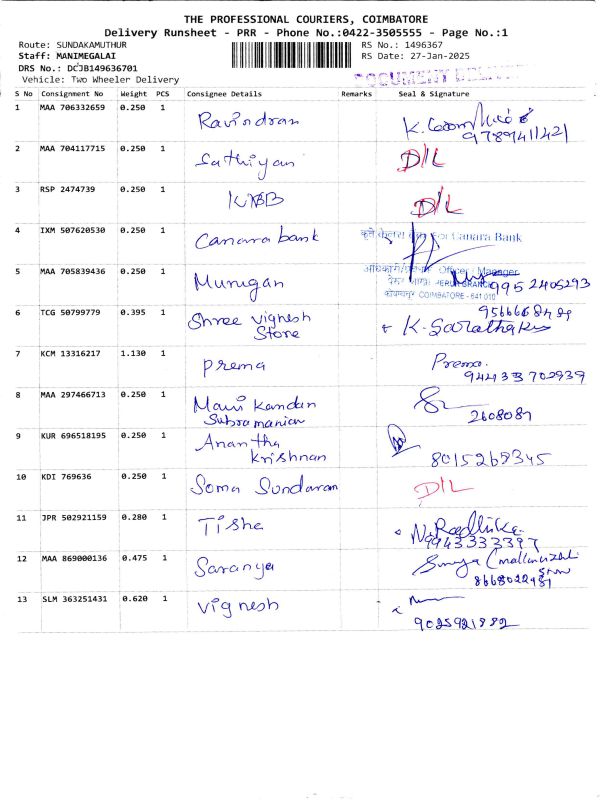 THE PROFESSIONAL COURIERS, COIMBATORE
Delivery Runsheet - PRR - Phone No.:0422-3505555 - Page No.:1
Route: SUNDAKAMUTHUR RS No.: 1496367
Staff: MANIMEGALAI RS Date: 27-Jan-2025
DRS No.: DCJB149636701
Vehicle: Two Wheeler Delivery DOCUMENT
S No Consignment No Weight PCS Consignee Details Remarks Seal & Signature
1 MAA 706332659 0.250 1 Ravindran
9789411421
2 MAA 704117715 0.250 1 Sathiyan D/L
3 RSP 2474739 0.250 1 KVBB D/L
4 IXM 507620530 0.250 1 Canara bank For Canara Bank
5 MAA 705839436 0.250 1 Murugan Officer Manager
BRANCH 995 2405293
COIMBATORE - 641 010
6 TCG 50799779 0.395 1 Shree Vignesh
Store
7 KCM 13316217 1.130 1 Prema Prema.
94433702939
8 MAA 297466713 0.250 1 Mani Kandan
Subramanian 2608081
9 KUR 696518195 0.250 1 Anantha
Krishnan 8015265345
10 KDI 769636 0.250 1 Soma Sundaram D/L
11 JPR 502921159 0.280 1 Tisha
9943333397
12 MAA 869000136 0.475 1 Saranya
13 SLM 363251431 0.620 1 Vignesh
9025921882